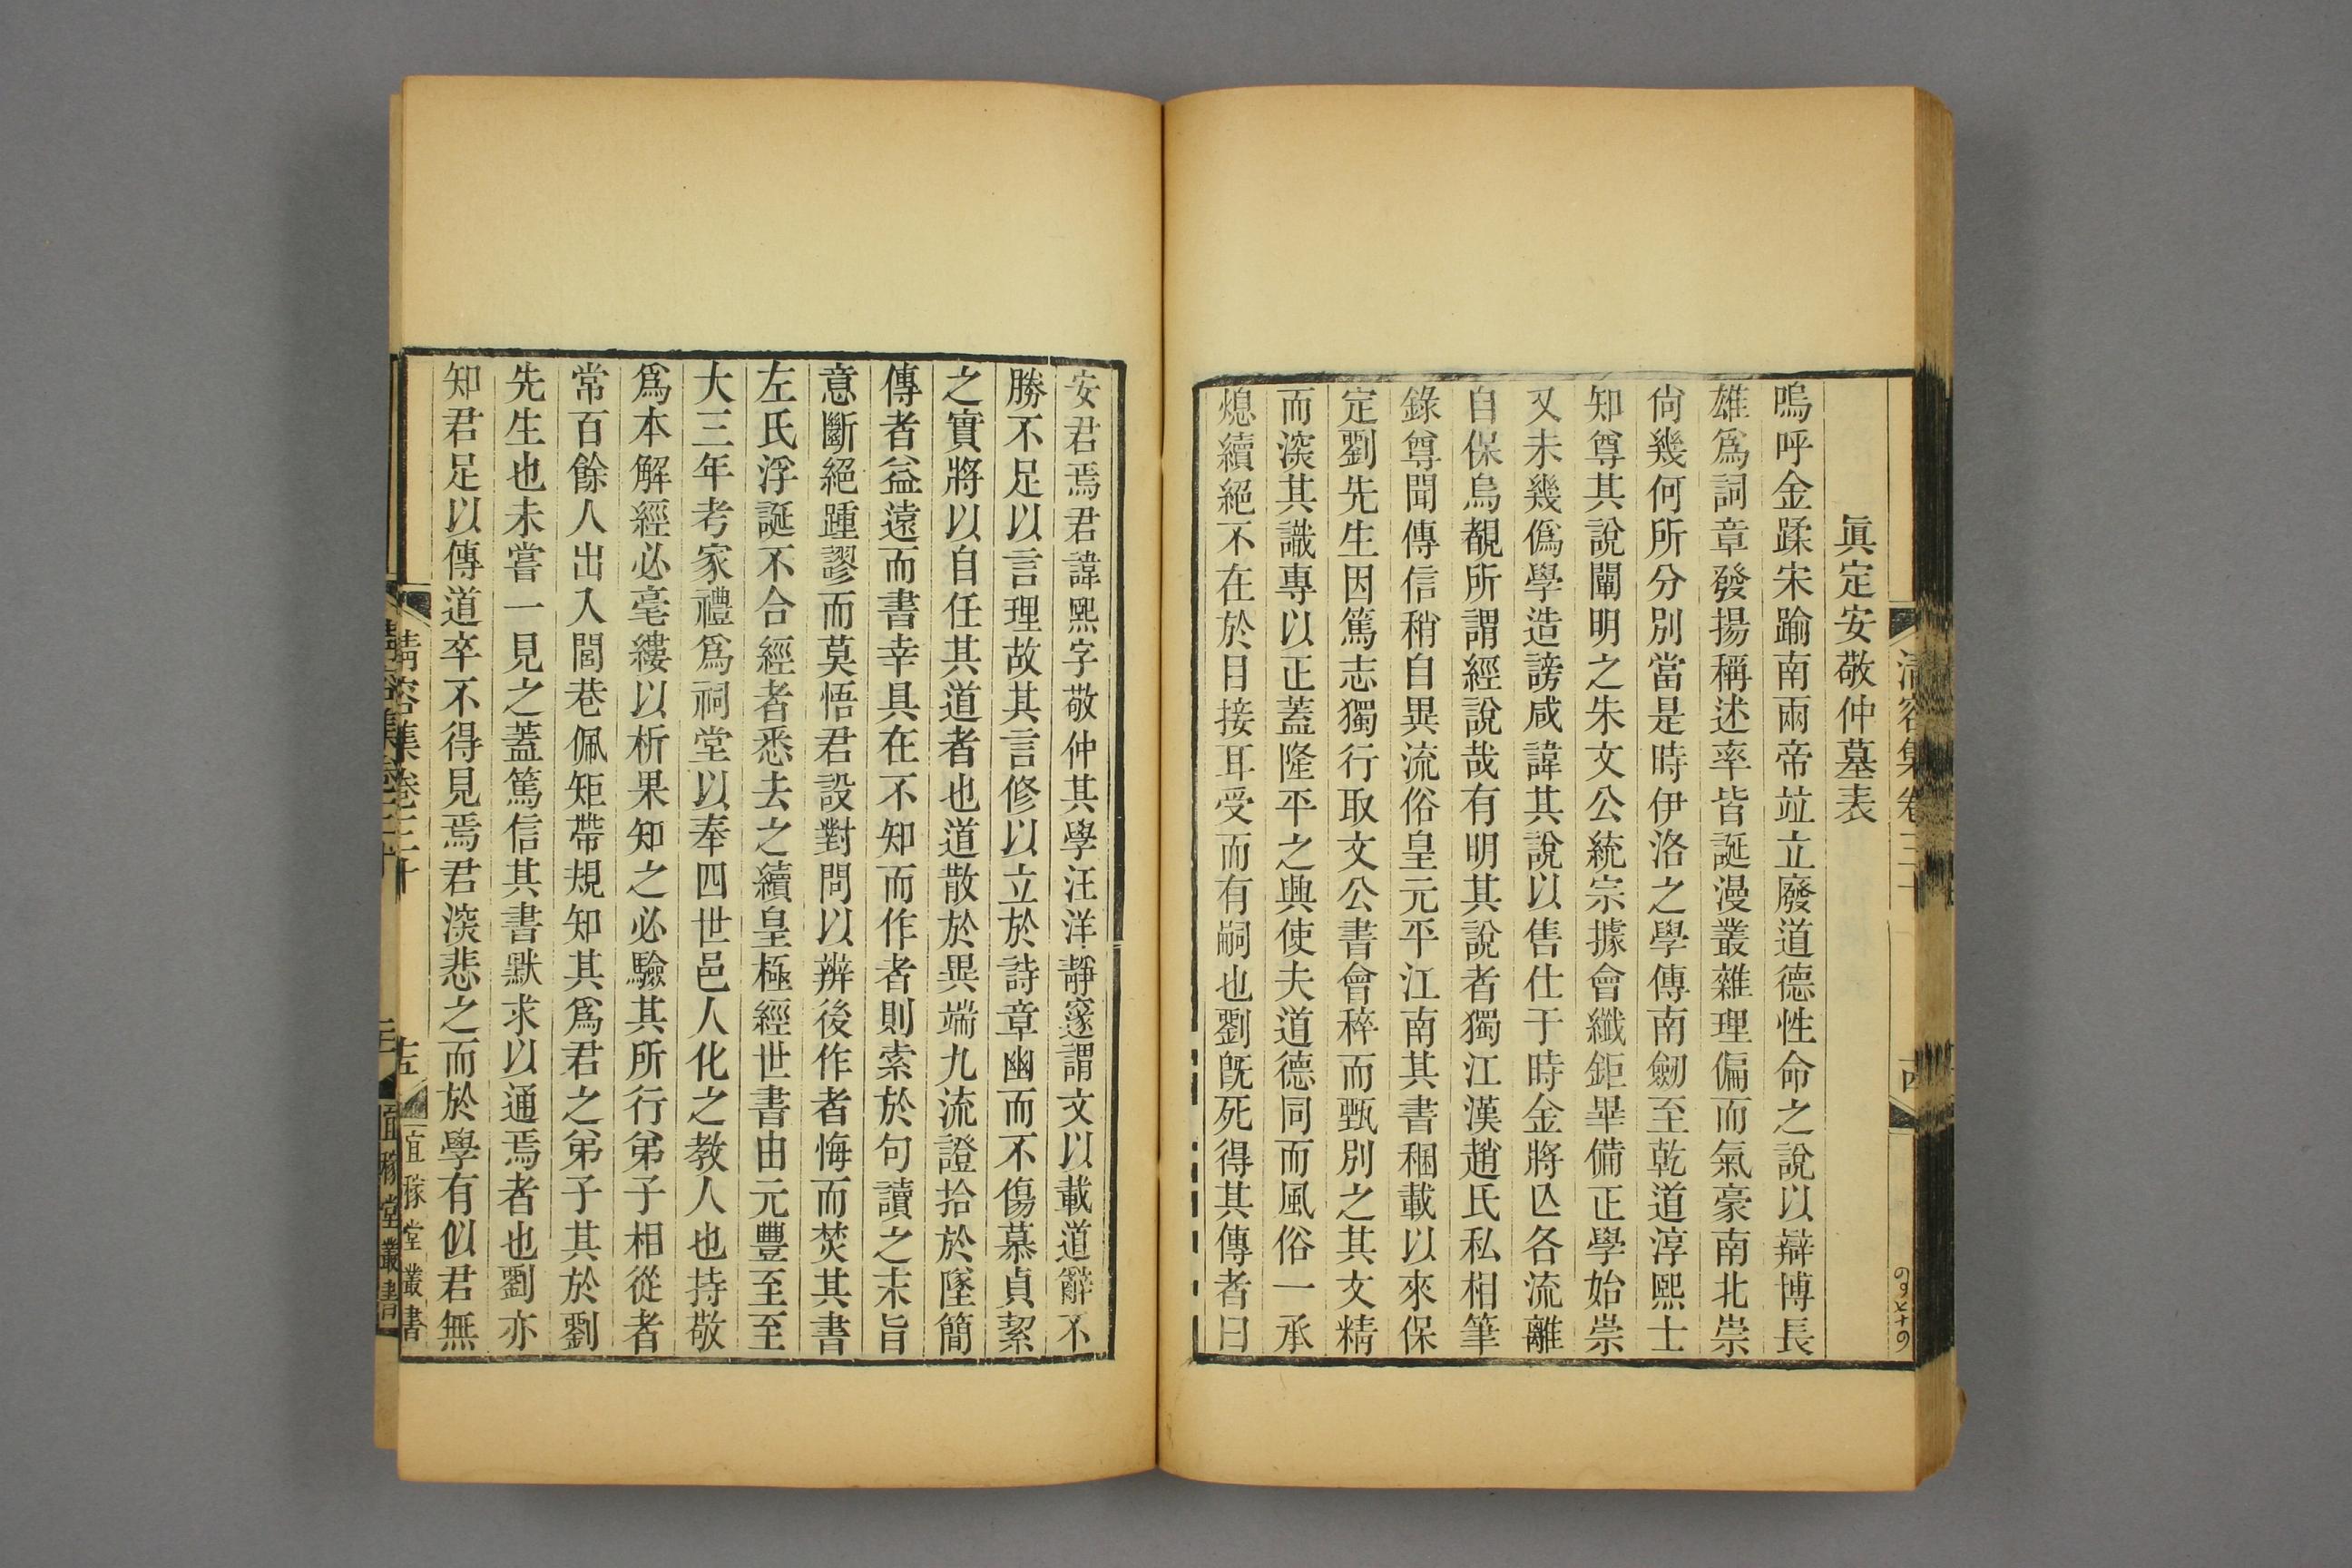 清容集卷三十
十四
眞定安敬仲墓表
嗚呼金蹂宋踰南兩帝竝立廢道德性命之說以辯博長
雄爲詞章發揚稱述率皆誕漫叢雜理偏而氣豪南北崇
尙幾何所分別當是時伊洛之學傳南劒至乾道淳熙士
知尊其說闡明之朱文公統宗據會纖鉅畢備正學始崇
又未幾僞學造謗咸諱其說以售仕于時金將亾各流離
自保烏覩所謂經說哉有明其說者獨江漢趙氏私相筆
錄尊聞傳信稍自異流俗皇元平江南其書稇載以來保
定劉先生因篤志獨行取文公書會稡而甄別之其文精
而深其識專以正蓋隆平之興使夫道德同而風俗一承
熄續絕不在於目接耳受而有嗣也劉旣死得其傳者曰
安君焉君諱熙字敬仲其學汪洋靜邃謂文以載道辭不
勝不足以言理故其言修以立於詩章幽而不傷慕貞絜
之實將以自任其道者也道散於異端九流證拾於墜簡
傳者益遠而書幸具在不知而作者則索於句讀之末旨
意斷絕踵謬而莫悟君設對問以辨後作者悔而焚其書
左氏浮誕不合經者悉去之續皇極經世書由元豐至至
大三年考家禮爲祠堂以奉四世邑人化之教人也持敬
爲本解經必毫縷以析果知之必驗其所行弟子相從者
常百餘人出入閭巷佩矩帶規知其爲君之弟子其於劉
先生也未嘗一見之蓋篤信其書默求以通焉者也劉亦
知君足以傳道卒不得見焉君深悲之而於學有似君無
清容集卷三十
十五
宜稼堂叢書